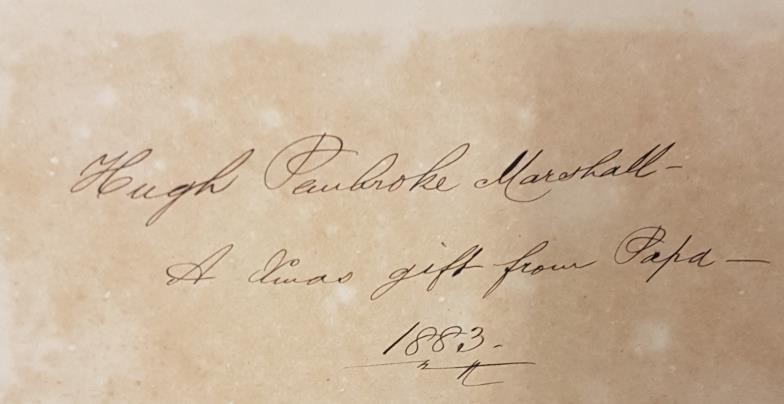 Hugh Pembroke Marshall –
A Xmas gift from Papa –
1883.